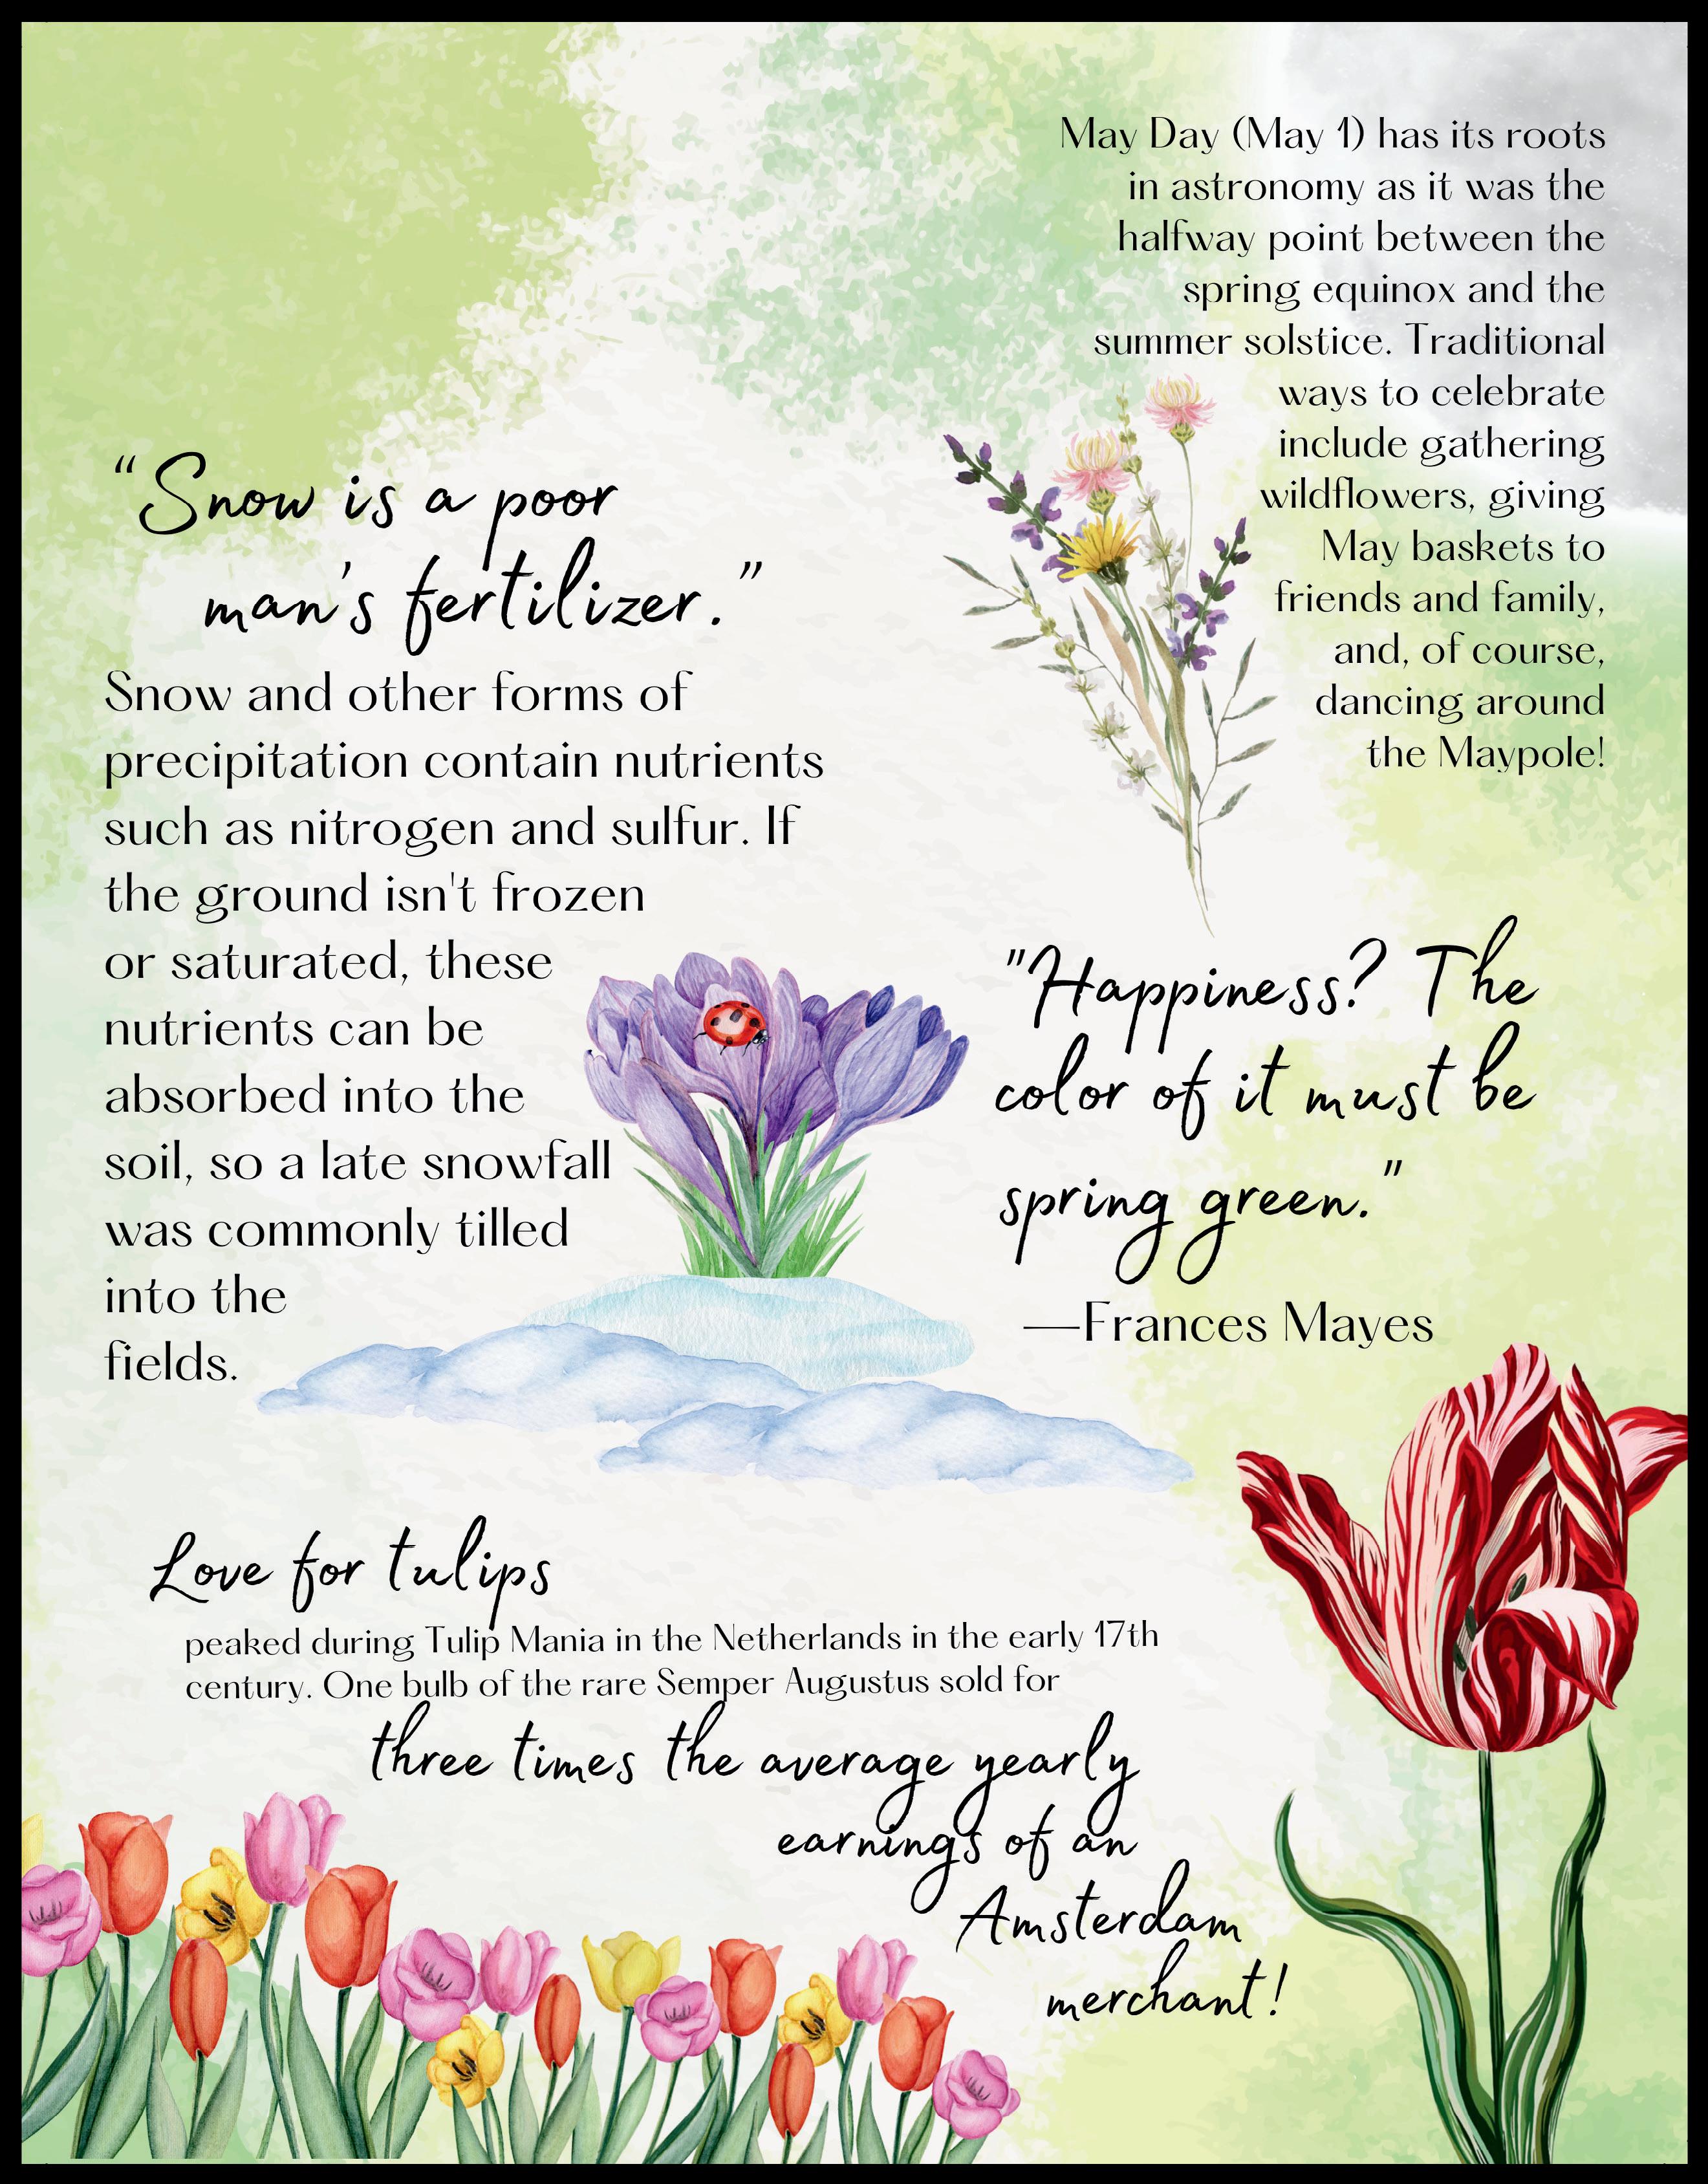 May Day (May 1) has its roots
in astronomy as it was the
halfway point between the
spring equinox and the
summer solstice. Traditional
ways to celebrate
include gathering
wildflowers, giving
May baskets to
friends and family,
and, of course,
dancing around
the Maypole!
“Snow is a poor
man's fertilizer.”
Snow and other forms of
precipitation contain nutrients
such as nitrogen and sulfur. If
the ground isn't frozen
or saturated, these
nutrients can be
absorbed into the
soil, so a late snowfall
was commonly tilled
into the
fields.
"Happiness? The
color of it must be
spring green."
—Frances Mayes
Love for tulips
peaked during Tulip Mania in the Netherlands in the early 17th
century. One bulb of the rare Semper Augustus sold for
three times the average yearly
earnings of an
Amsterdam
merchant!